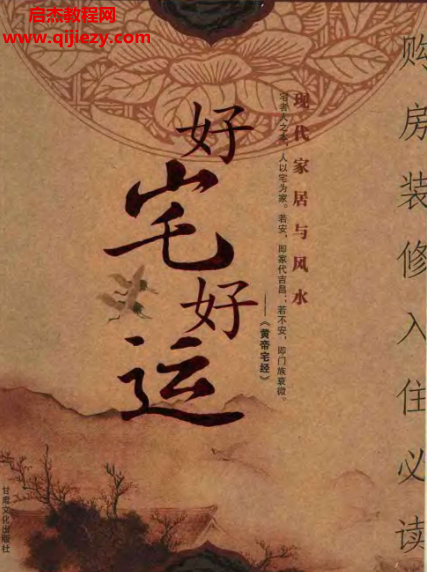 启杰教程网
www.qijiezy.com
购房装修入住必读
现代家居与风水
宅者人之本，人以宅为家。若安，即家代吉昌；若不安，即门族衰微。
——《黄帝宅经》
好宅好运
甘肃文化出版社